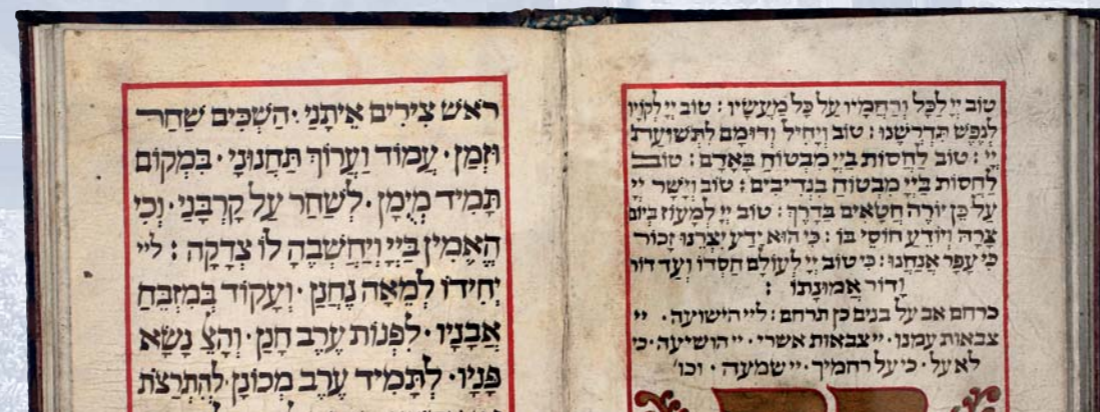 טוֹב יְיָ לַכֹּל וְרַחֲמָיו עַל כָּל מַעֲשָׂיו : טוֹב יְיָ לְקֹוָיו
לְנֶפֶשׁ תִּדְרְשֶׁנּוּ : טוֹב וְיָחִיל וְדוּמָם לִתְשׁוּעַת
יְיָ : טוֹב לַחֲסוֹת בַּיְיָ מִבְּטוֹחַ בָּאָדָם : טוֹב
לַחֲסוֹת בַּיְיָ מִבְּטוֹחַ בִּנְדִיבִים : טוֹב וְיָשָׁר יְיָ
עַל כֵּן יוֹרֶה חַטָּאִים בַּדָּרֶךְ : טוֹב יְיָ לְמָעוֹז בְּיוֹם
צָרָה וְיוֹדֵעַ חוֹסֵי בוֹ : כִּי הוּא יָדַע יִצְרֵנוּ זָכוּר
כִּי עָפָר אֲנָחְנוּ : כִּי טוֹב יְיָ לְעוֹלָם חַסְדּוֹ וְעַד דוֹר
וָדוֹר אֱמוּנָתוֹ :
כרחם אב על בנים כן תרחם : ליי הישועה · יי
צבאות עמנו · יי צבאות אשרי · יי הושיעה · כי
לא על · כי על רחמיך · יי שמעה · וכו'
רֹאשׁ צִירִים אֵיתָנִי · הִשְׁכִּים שַׁחַר
וּזְמַן · עֲמוֹד וַעֲרוֹךְ תַּחֲנוּנַי · בִּמְקוֹם
תָּמִיד מְיֻמָּן · לְשַׁחַר עַל קָרְבָּנִי · וְכִי
הֶאֱמִין בַּיְיָ וַיַּחְשְׁבֶהָ לּוֹ צְדָקָה : ליי
יְחִידוֹ לְמֵאָה נֶחֱנַן · וְעָקוֹד בְּמִזְבַּח
אֲבָנָיו · לִפְנוֹת עֶרֶב חָנַן · וְהָצֵ נָשָׂא
פָּנָיו · לְתָמִיד עֶרֶב מְכוֹנָן · לְהִתְרַצּוֹת